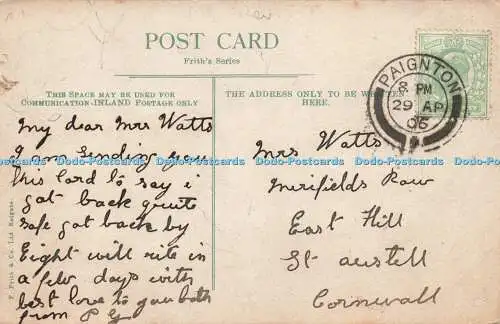 POST CARD
Frith's Series
THIS SPACE MAY BE USED FOR
COMMUNICATION—INLAND POSTAGE ONLY
THE ADDRESS ONLY TO BE WRITTEN
HERE.
PAIGNTON
8 PM
29 AP
06
My dear Mrs Watts
I am sending you
this Card to say i
got back quite
safe got back by
Eight will rite in
a few days with
best love to you both
from P G
Mrs Watts
Merifields Row
East Hill
St austell
Cornwall
F. Frith & Co. Ltd Reigate.
Dodo-Postcards Dodo-Postcards Dodo-Postcards Dodo-Postcards Dodo-Postcards Dodo-Postcards